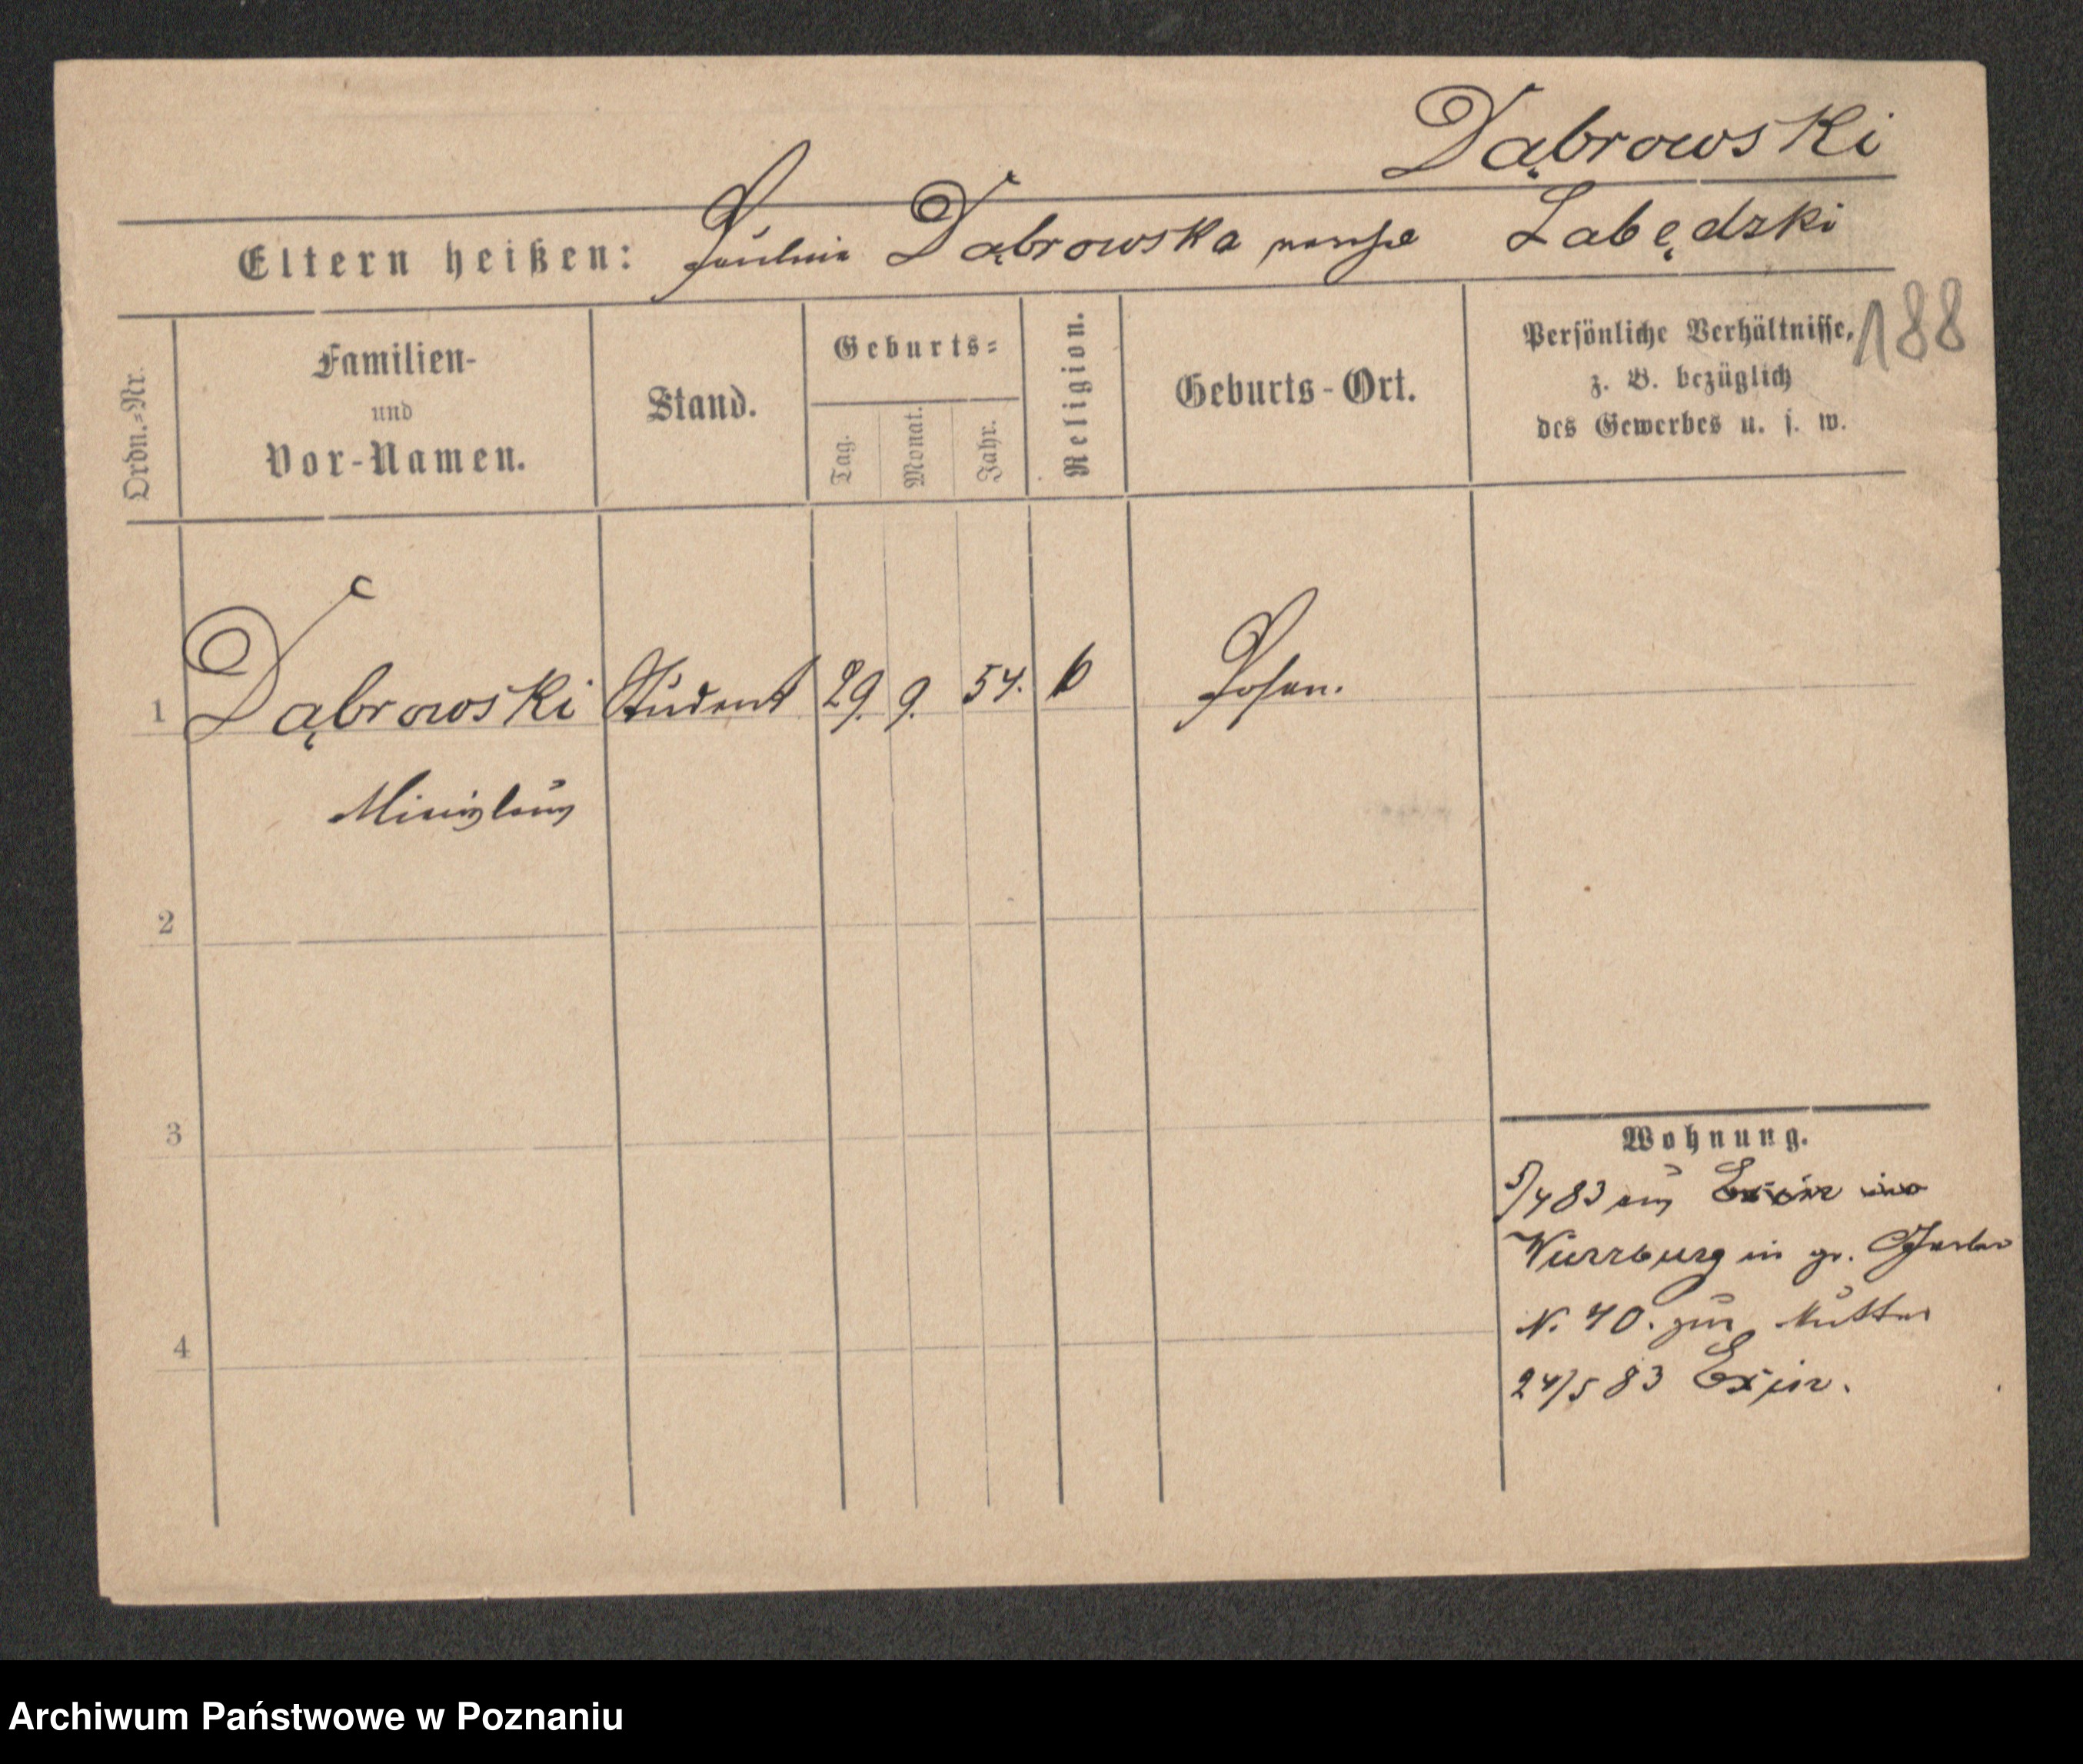 Dąbrowski
Eltern heißen: Paulina Dąbrowska Labędzki
188
Ordn.-Nr.
Familien-
und
Vor-Namen.
Stand.
Geburts-
Tag.
Monat.
Jahr.
Religion.
Geburts-Ort.
Persönliche Verhältnisse,
z. B. bezüglich
des Gewerbes u. s. w.
1 Dąbrowski Student 29. 9. 54. Posen.
Miecislaus
2
3
4
Wohnung.
5/4 83 aus Exin
Wurzburg in gr. Gerber
N. 40. zur Mutter
24/5 83 Exin.
Archiwum Państwowe w Poznaniu